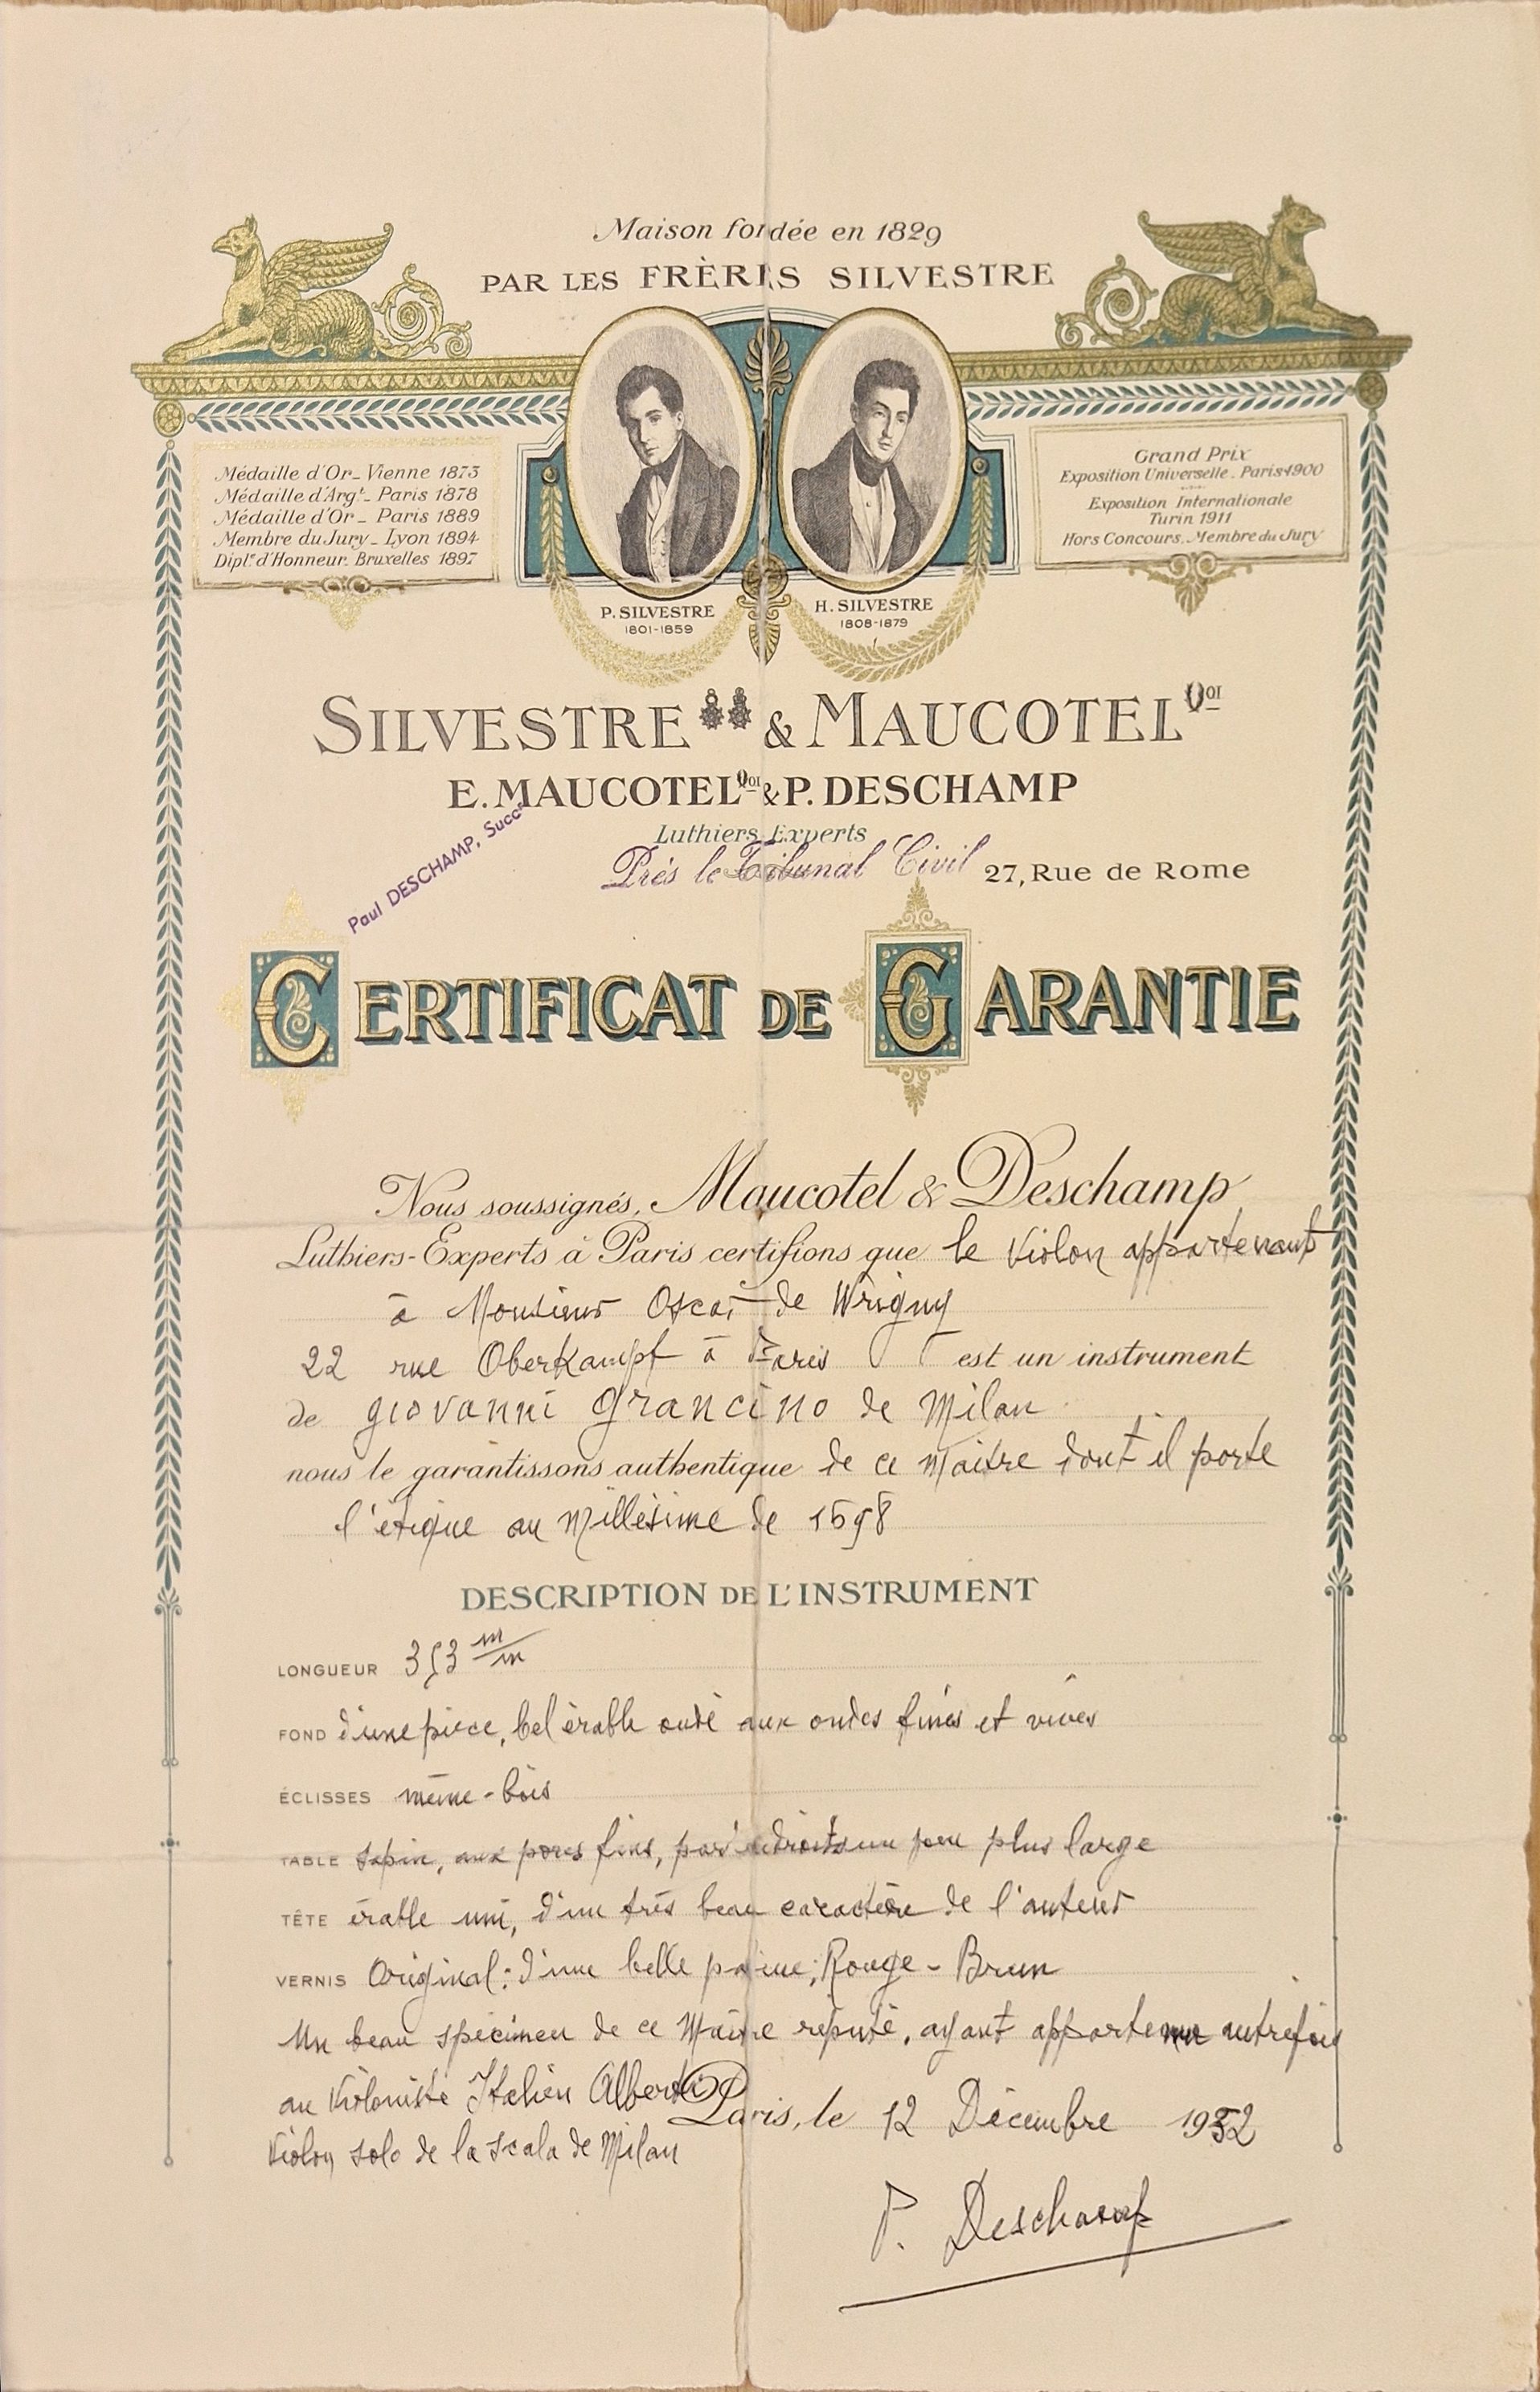 Maison fondée en 1829
PAR LES FRÈRES SILVESTRE
Médaille d'Or_ Vienne 1873
Médaille d'Argt_ Paris 1878
Médaille d'Or_ Paris 1889
Membre du Jury_ Lyon 1894
Diple d'Honneur. Bruxelles 1897
Grand Prix
Exposition Universelle. Paris 1900
Exposition Internationale
Turin 1911
Hors Concours. Membre du Jury
P. SILVESTRE
1801-1859
H. SILVESTRE
1808-1879
SILVESTRE & MAUCOTEL
E. MAUCOTEL & P. DESCHAMP
Luthiers Experts
Près le Tribunal Civil 27, Rue de Rome
Paul DESCHAMP, Succr
CERTIFICAT DE GARANTIE
Nous soussignés, Maucotel & Deschamp
Luthiers-Experts à Paris certifions que le violon appartenant
à Monsieur Oscar de Wrigny
22 rue Oberkampf à Paris est un instrument
de giovanni grancino de Milan
nous le garantissons authentique de ce Maitre dont il porte
l'étique au Millésime de 1698
DESCRIPTION DE L'INSTRUMENT
LONGUEUR 353 m/m
FOND d'une pièce, bel érable ondé aux ondes fines et vives
ÉCLISSES même-bois
TABLE sapin, aux pores fins, par endroits un peu plus large
TÊTE érable uni, d'un très beau caractère de l'auteur
VERNIS Original: d'une belle patine; Rouge-Brun
Un beau spécimen de ce Maitre réputé, ayant appartenu autrefois
au Violoniste Italien Alberti
Violon solo de la Scala de Milan
Paris, le 12 Décembre 1952
P. Deschamp